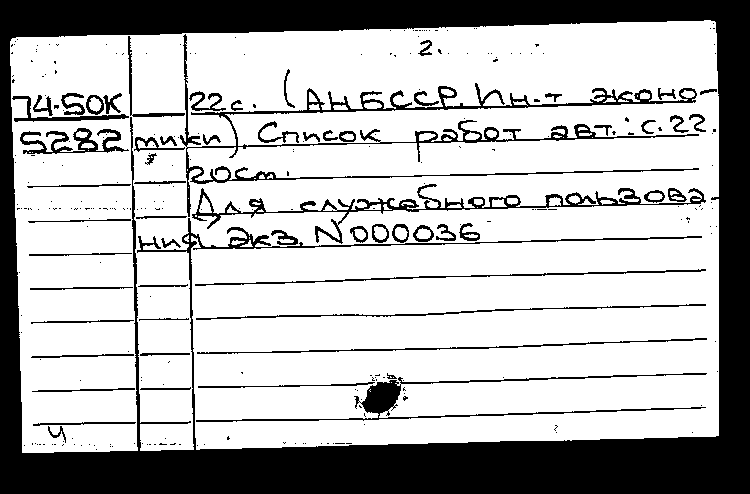 2.
74-50К 22с. (АН БССР. Ин-т эконо-
5282 мики). Список работ авт.: с.22.
20см.
Для служебного пользова-
ния. Экз. N000036
ч